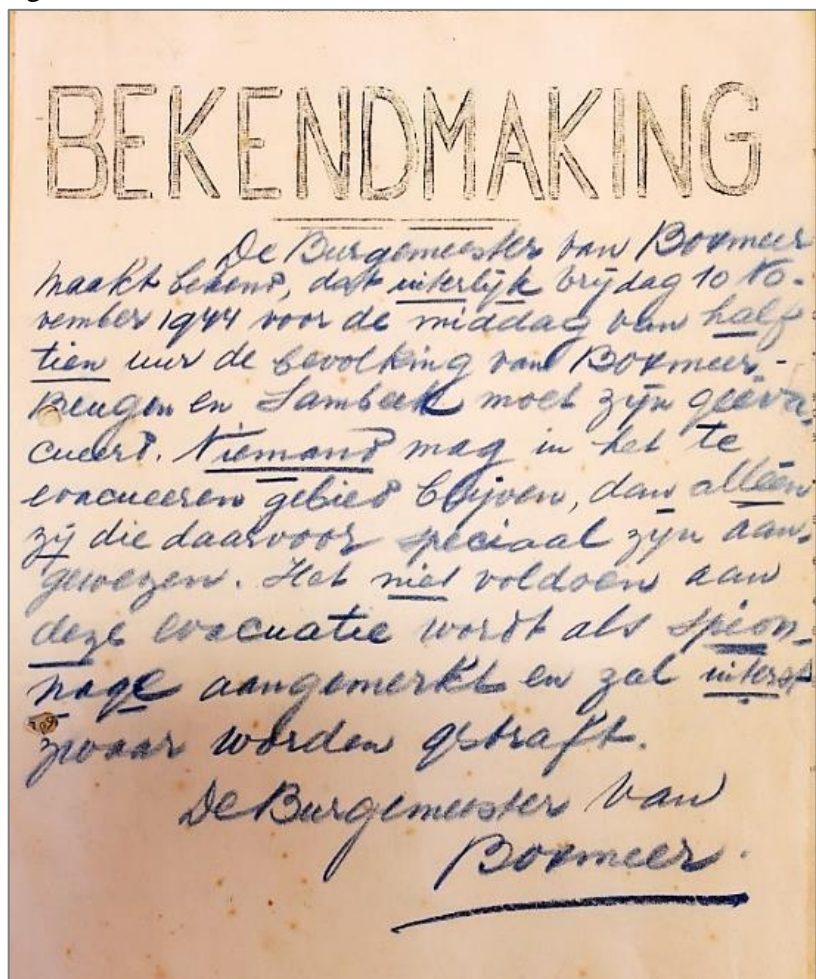 BEKENDMAKING
De Burgemeester van Boxmeer
maakt bekend, dat uiterlijk vrijdag 10 No-
vember 1944 voor de middag van half
tien uur de bevolking van Boxmeer-
Beugen en Sambeek moet zijn geëva-
cueerd. Niemand mag in het te
evacueeren gebied blijven, dan alléén
zij die daarvoor speciaal zijn aan-
gewezen. Het niet voldoen aan
deze evacuatie wordt als spion-
nage aangemerkt en zal uiterst
zwaar worden gestraft.
De Burgemeester van
Boxmeer.